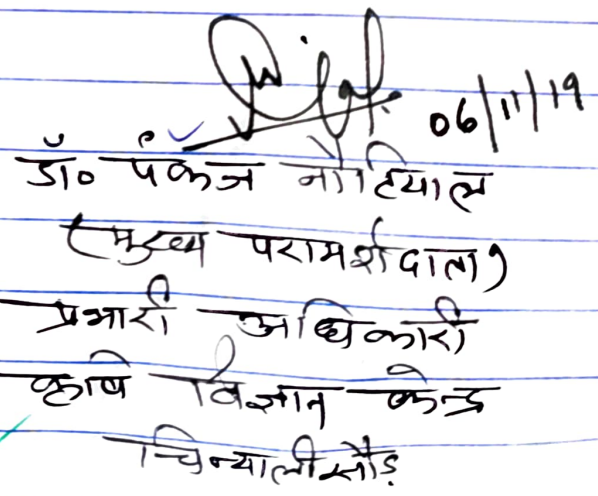 06/11/19
डॉ० पंकज नौटियाल
(मुख्य परामर्शदाता)
प्रभारी अधिकारी
कृषि विज्ञान केन्द्र
चिन्यालीसौड़